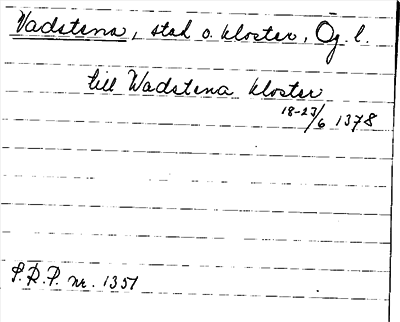 Vadstena, stad o. kloster, Ög l.
till Wadstena kloster
18-23/6 1378
S.R.P. nr. 1351